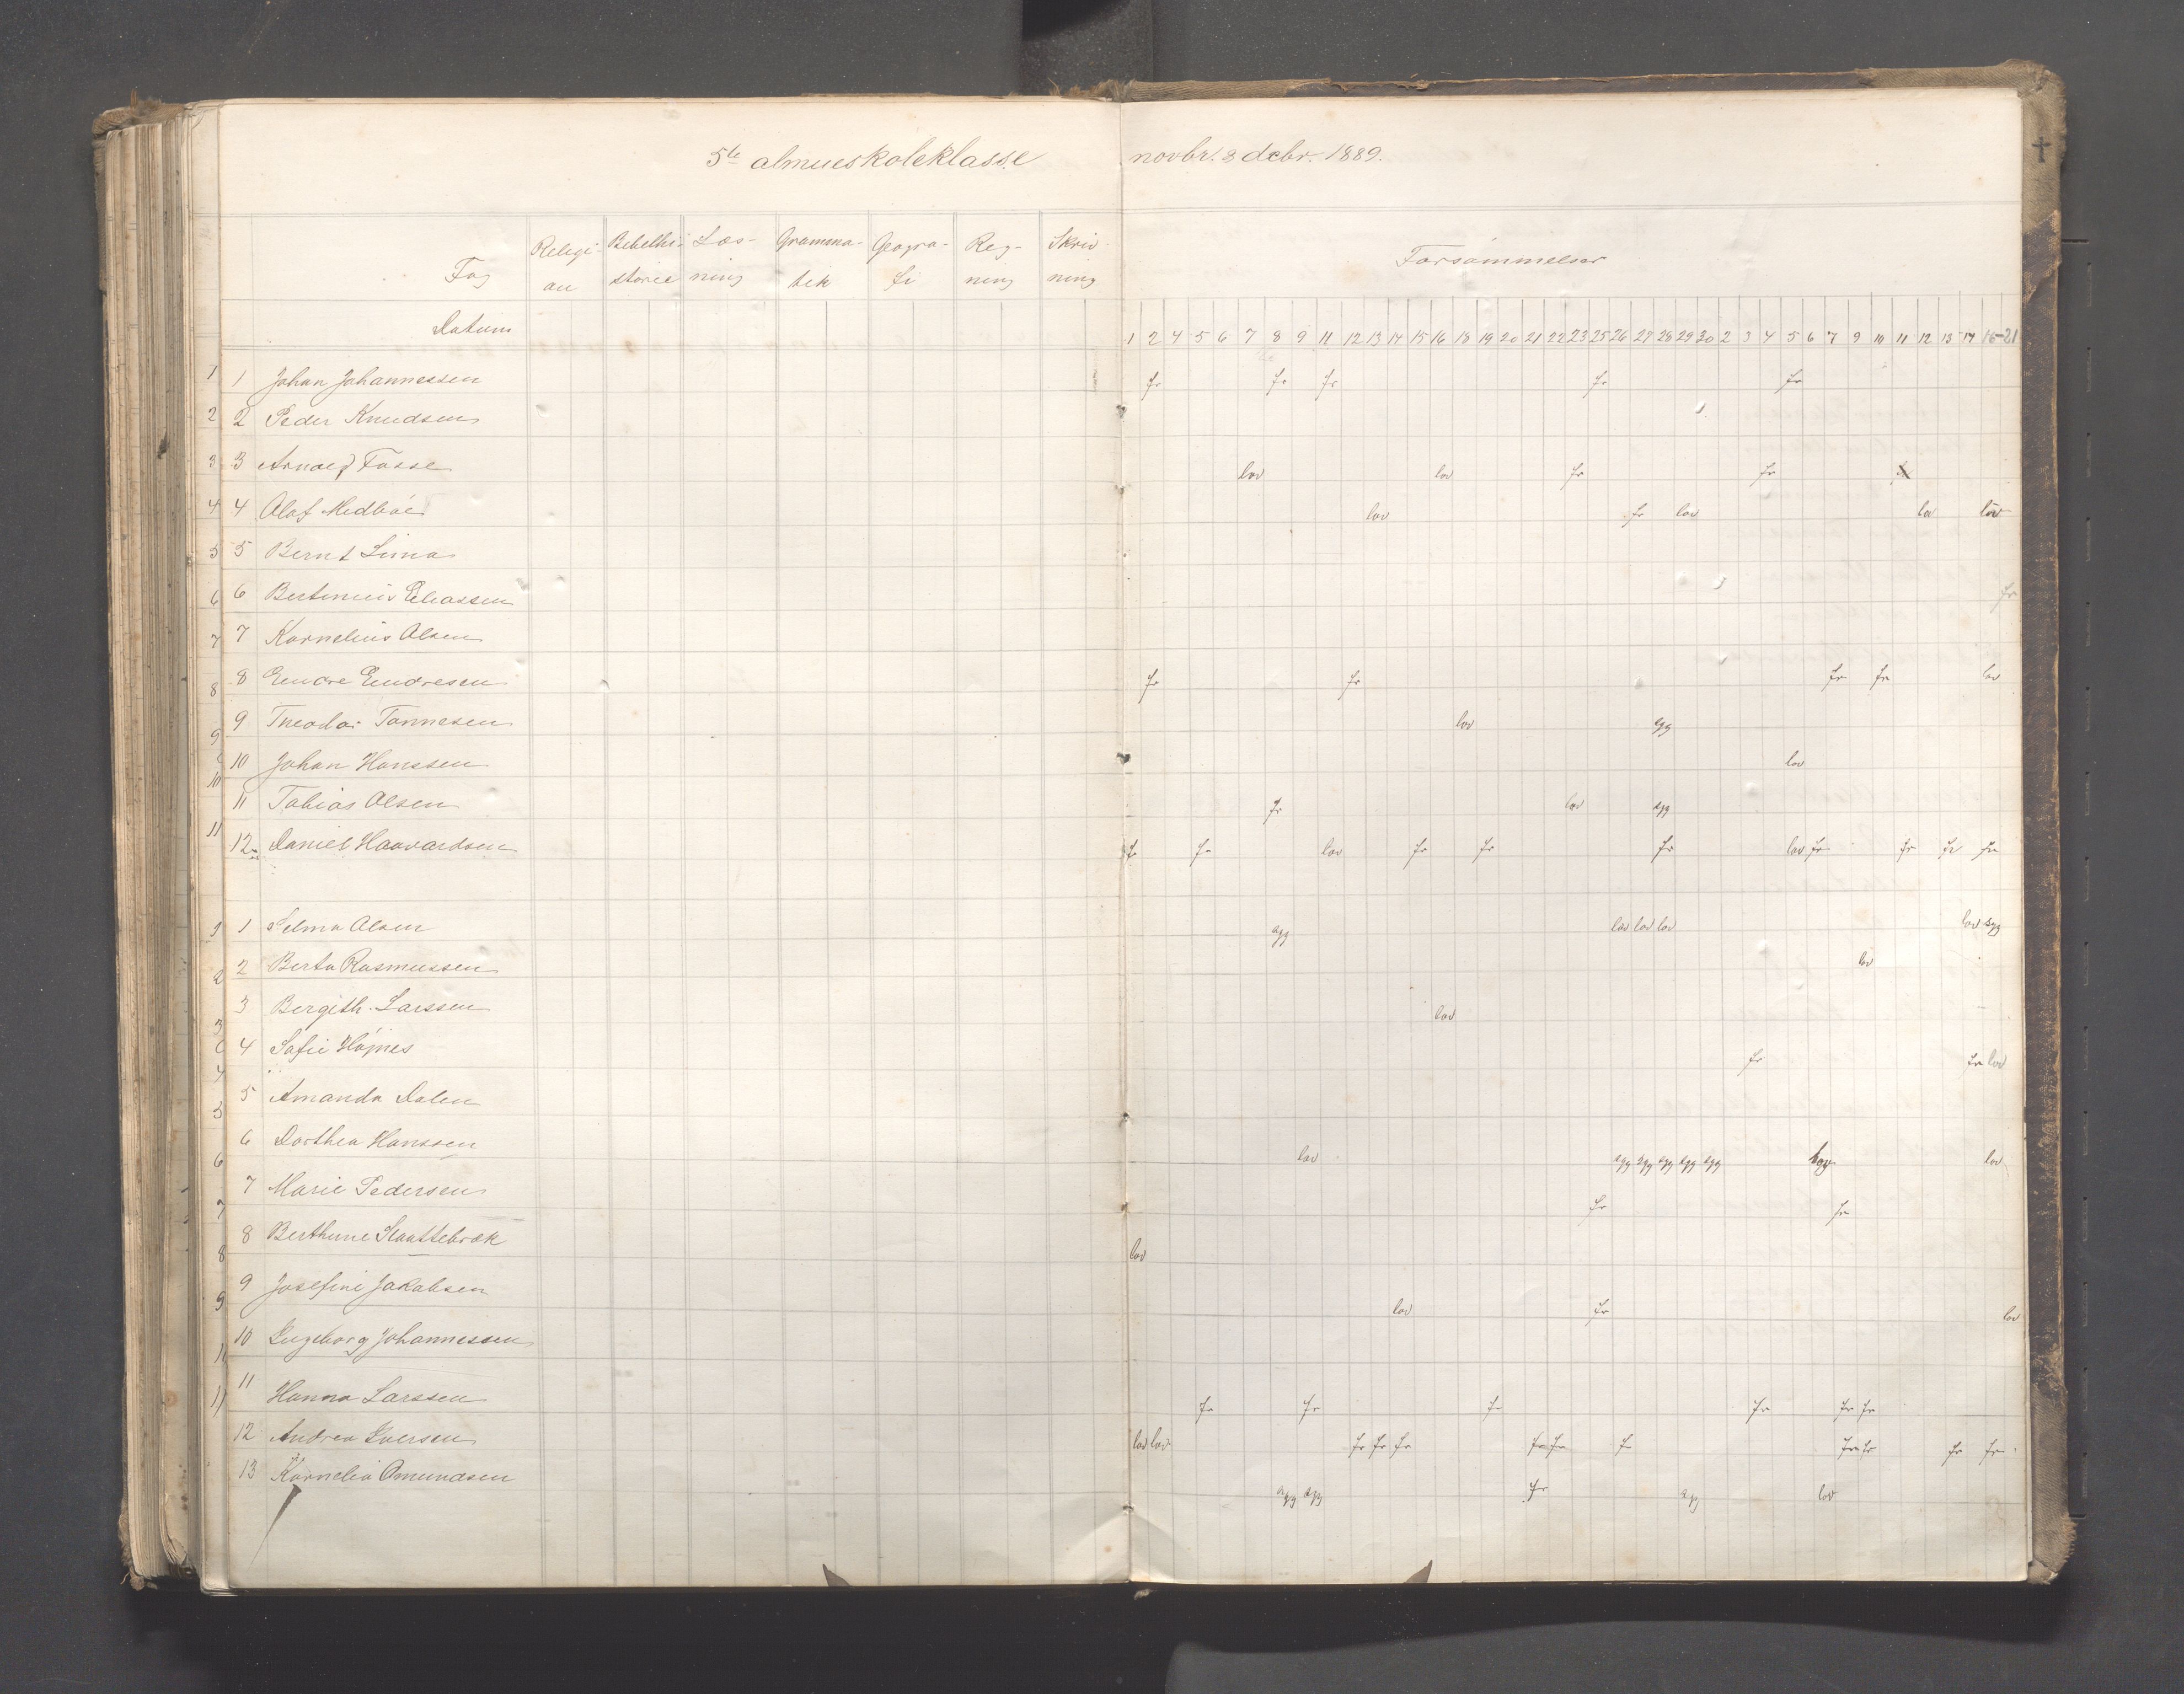 5te almueskoleklasse novbr. & debr. 1889.
Fag Religi- Bibelhi- Læs- Gramma- Geogra- Reg- Skriv- Forsømmelser
on storie ning tik fi ning ning
Datum 1 2 4 5 6 7 8 9 11 12 13 14 15 16 18 19 20 21 22 23 25 26 27 28 29 30 2 3 4 5 6 7 9 10 11 12 13 14 16-21
1 1 Johan Johannessen fr fr fr fr fr
2 2 Peder Knudsen
3 3 Arnold Fosse lov lov fr fr
4 4 Olaf Medbøe lov fr lov lov lov
5 5 Bernt Lima
6 6 Bertinius Eliassen fr
7 7 Kornelius Olsen
8 8 Endre Endresen fr fr fr fr lov
9 9 Theodor Tønnesen lov syg
10 10 Johan Hanssen lov
11 Tobias Olsen fr lov syg
11 12 Daniel Haavardsen fr fr lov fr fr fr lov fr fr fr fr
1 1 Selma Olsen syg lov lov lov lov syg
2 2 Berta Rasmussen lov
3 3 Bergith Larssen lov
4 4 Sofie Højnes fr fr lov
5 5 Amanda Dalen
6 6 Dorthea Hanssen lov syg syg syg syg syg lov
7 7 Marie Pedersen fr fr
8 8 Berthine Slaattebræk lov
9 9 Josefine Jakobsen lov fr lov
10 10 Ingeborg Johannessen
11 11 Hanna Larssen fr fr fr fr fr fr
12 Andrea Iversen lov lov fr fr fr fr fr fr fr fr fr fr
13 Kornelia Omundsen syg syg fr syg lov